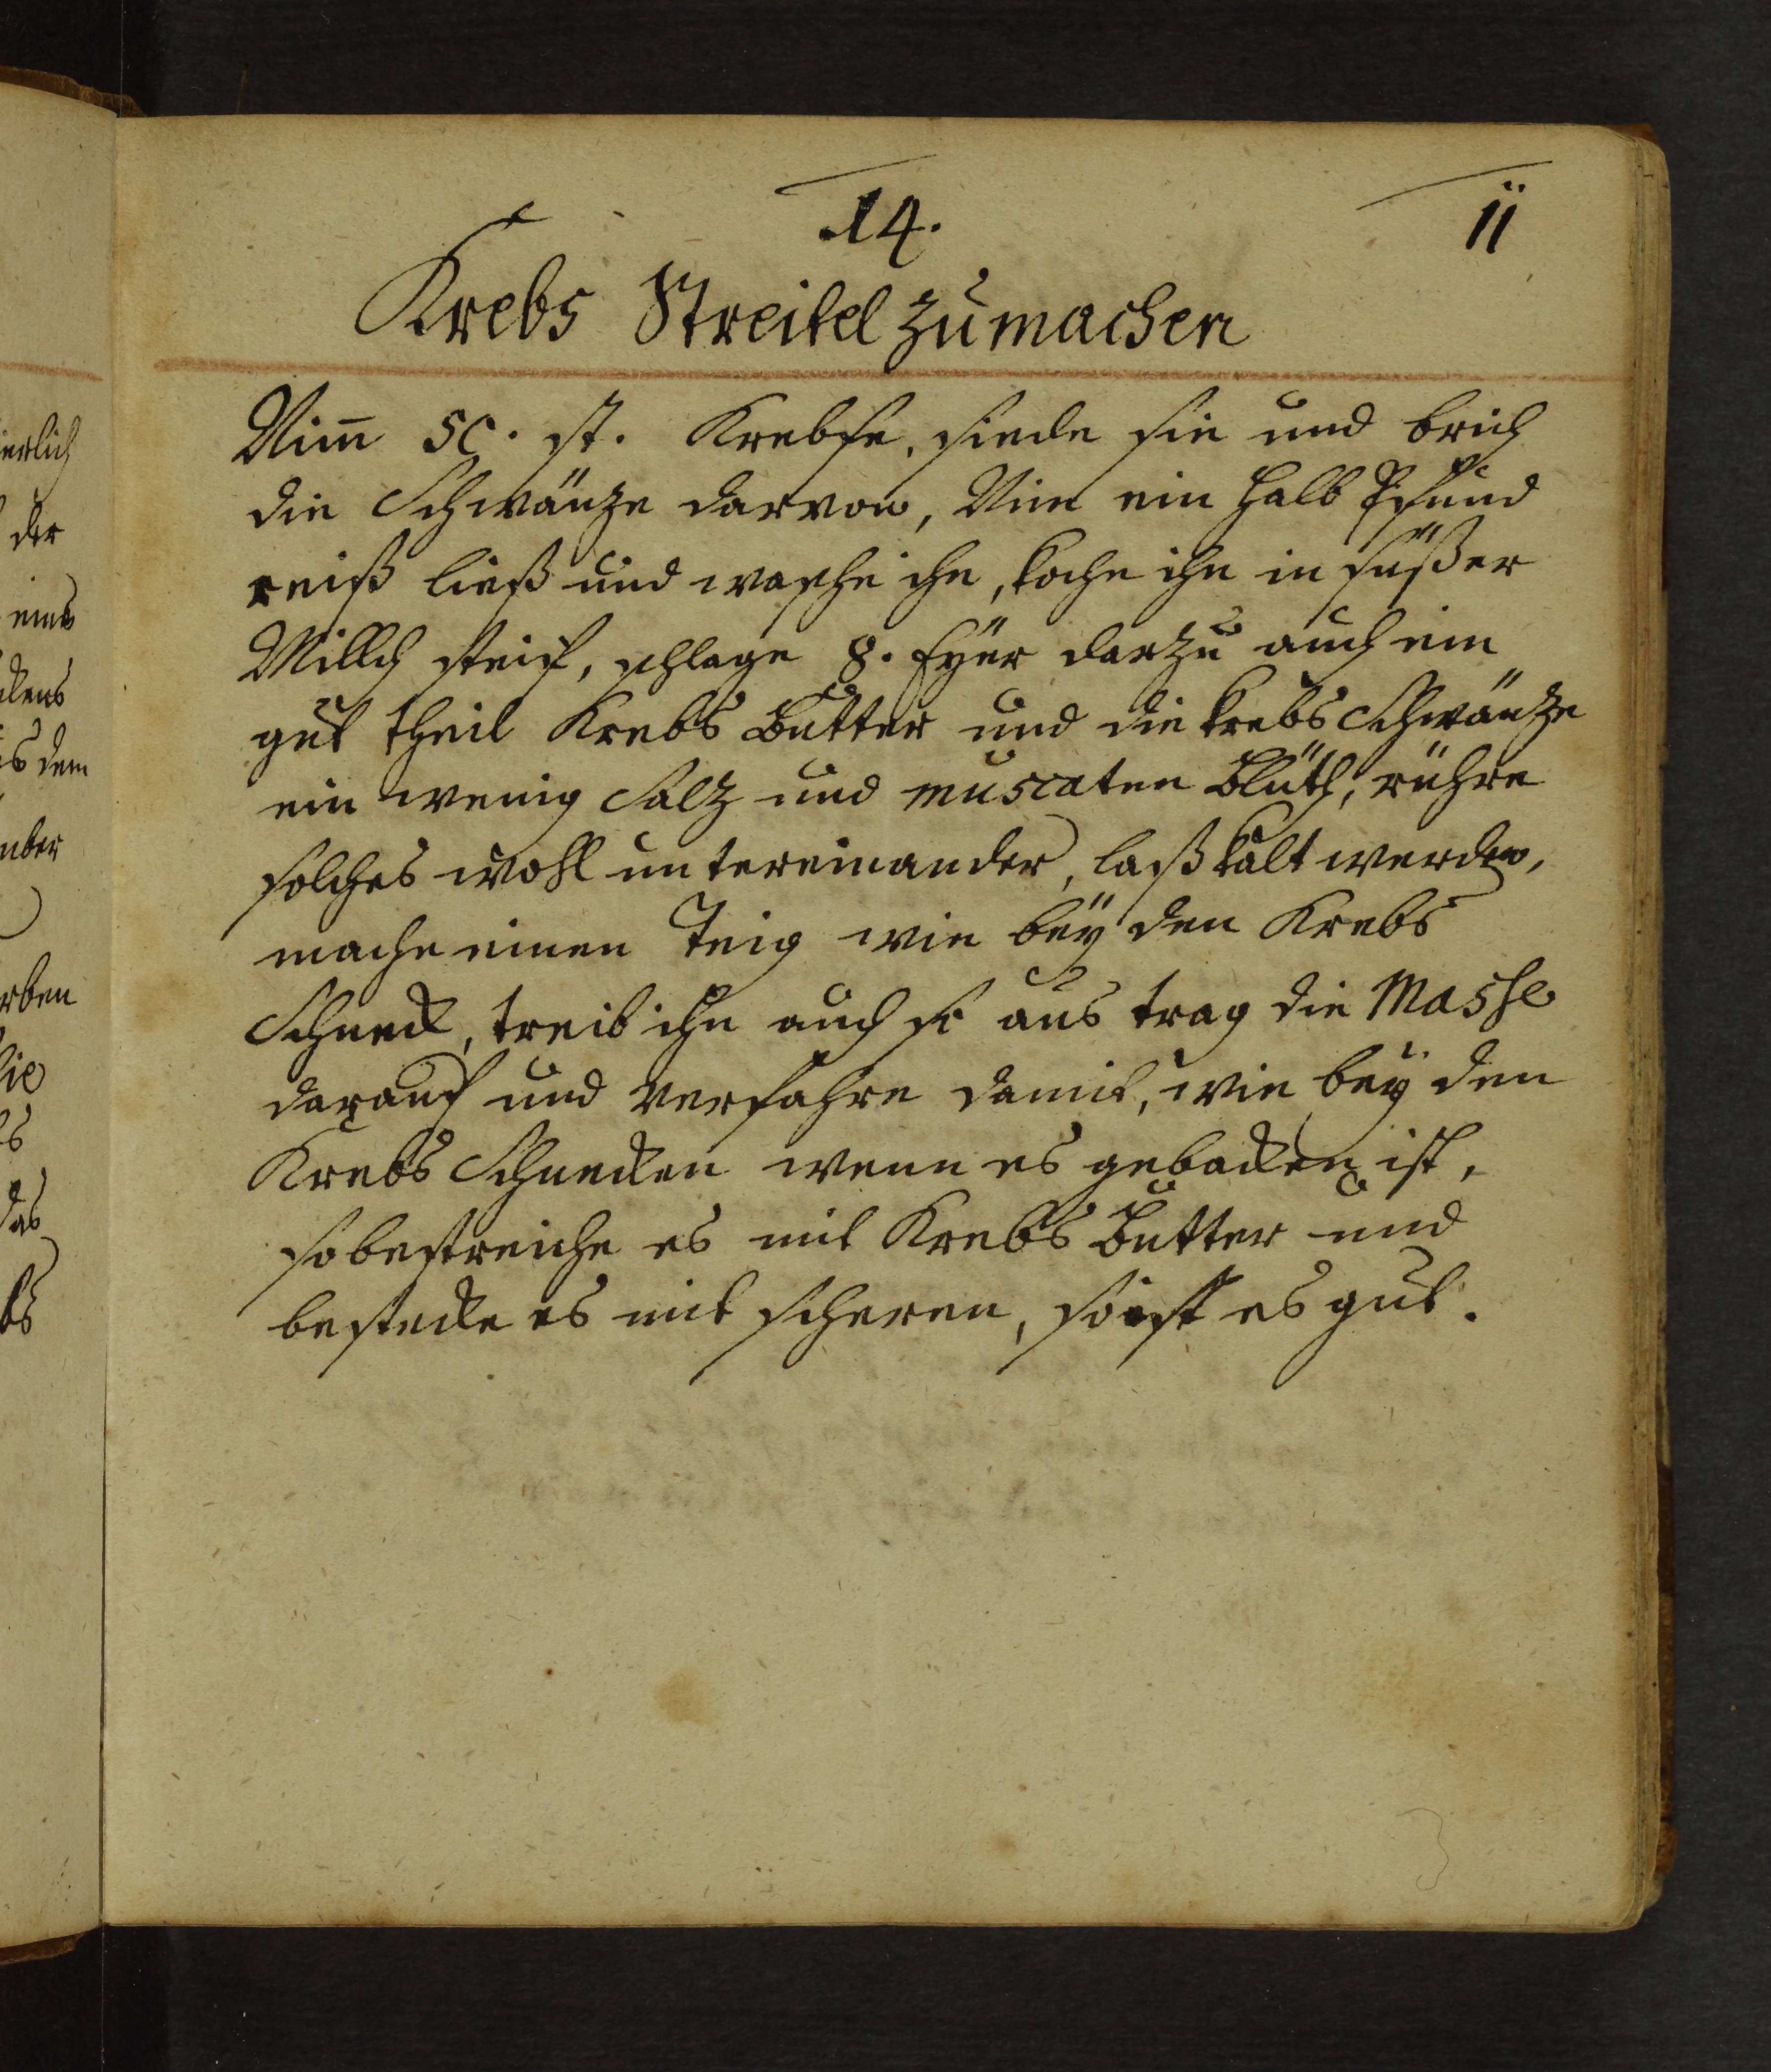 14.
11
Krebs Streitel zu machen
Nim̄ 50. st. Krebse, siede sie und brich
die Schwänze darvon, Nim ein halb Pfund
reiß ließ und wasche ihn, koche ihn in süßer
Millch steif, schlage 8. Eÿer darzu auch ein
gut theil Krebs Butter und die krebs Schwäntze
ein wenig Saltz und muscaten Blüth, rühre
solches wohl untereinander, laß kalt werden,
mache einen Teig wie beÿ den Krebs
Schneck, treib ihn auch so aus trag die Masse
darauf und verfahre damit, wie beÿ den
Krebs Schnecken wenn es gebacken ist,
so bestreiche es mit Krebs Butter und
bestecke es mit scheren, so ist es gut.
ierlich
der
eine
ckens
s dem
mber
rben
sie
das